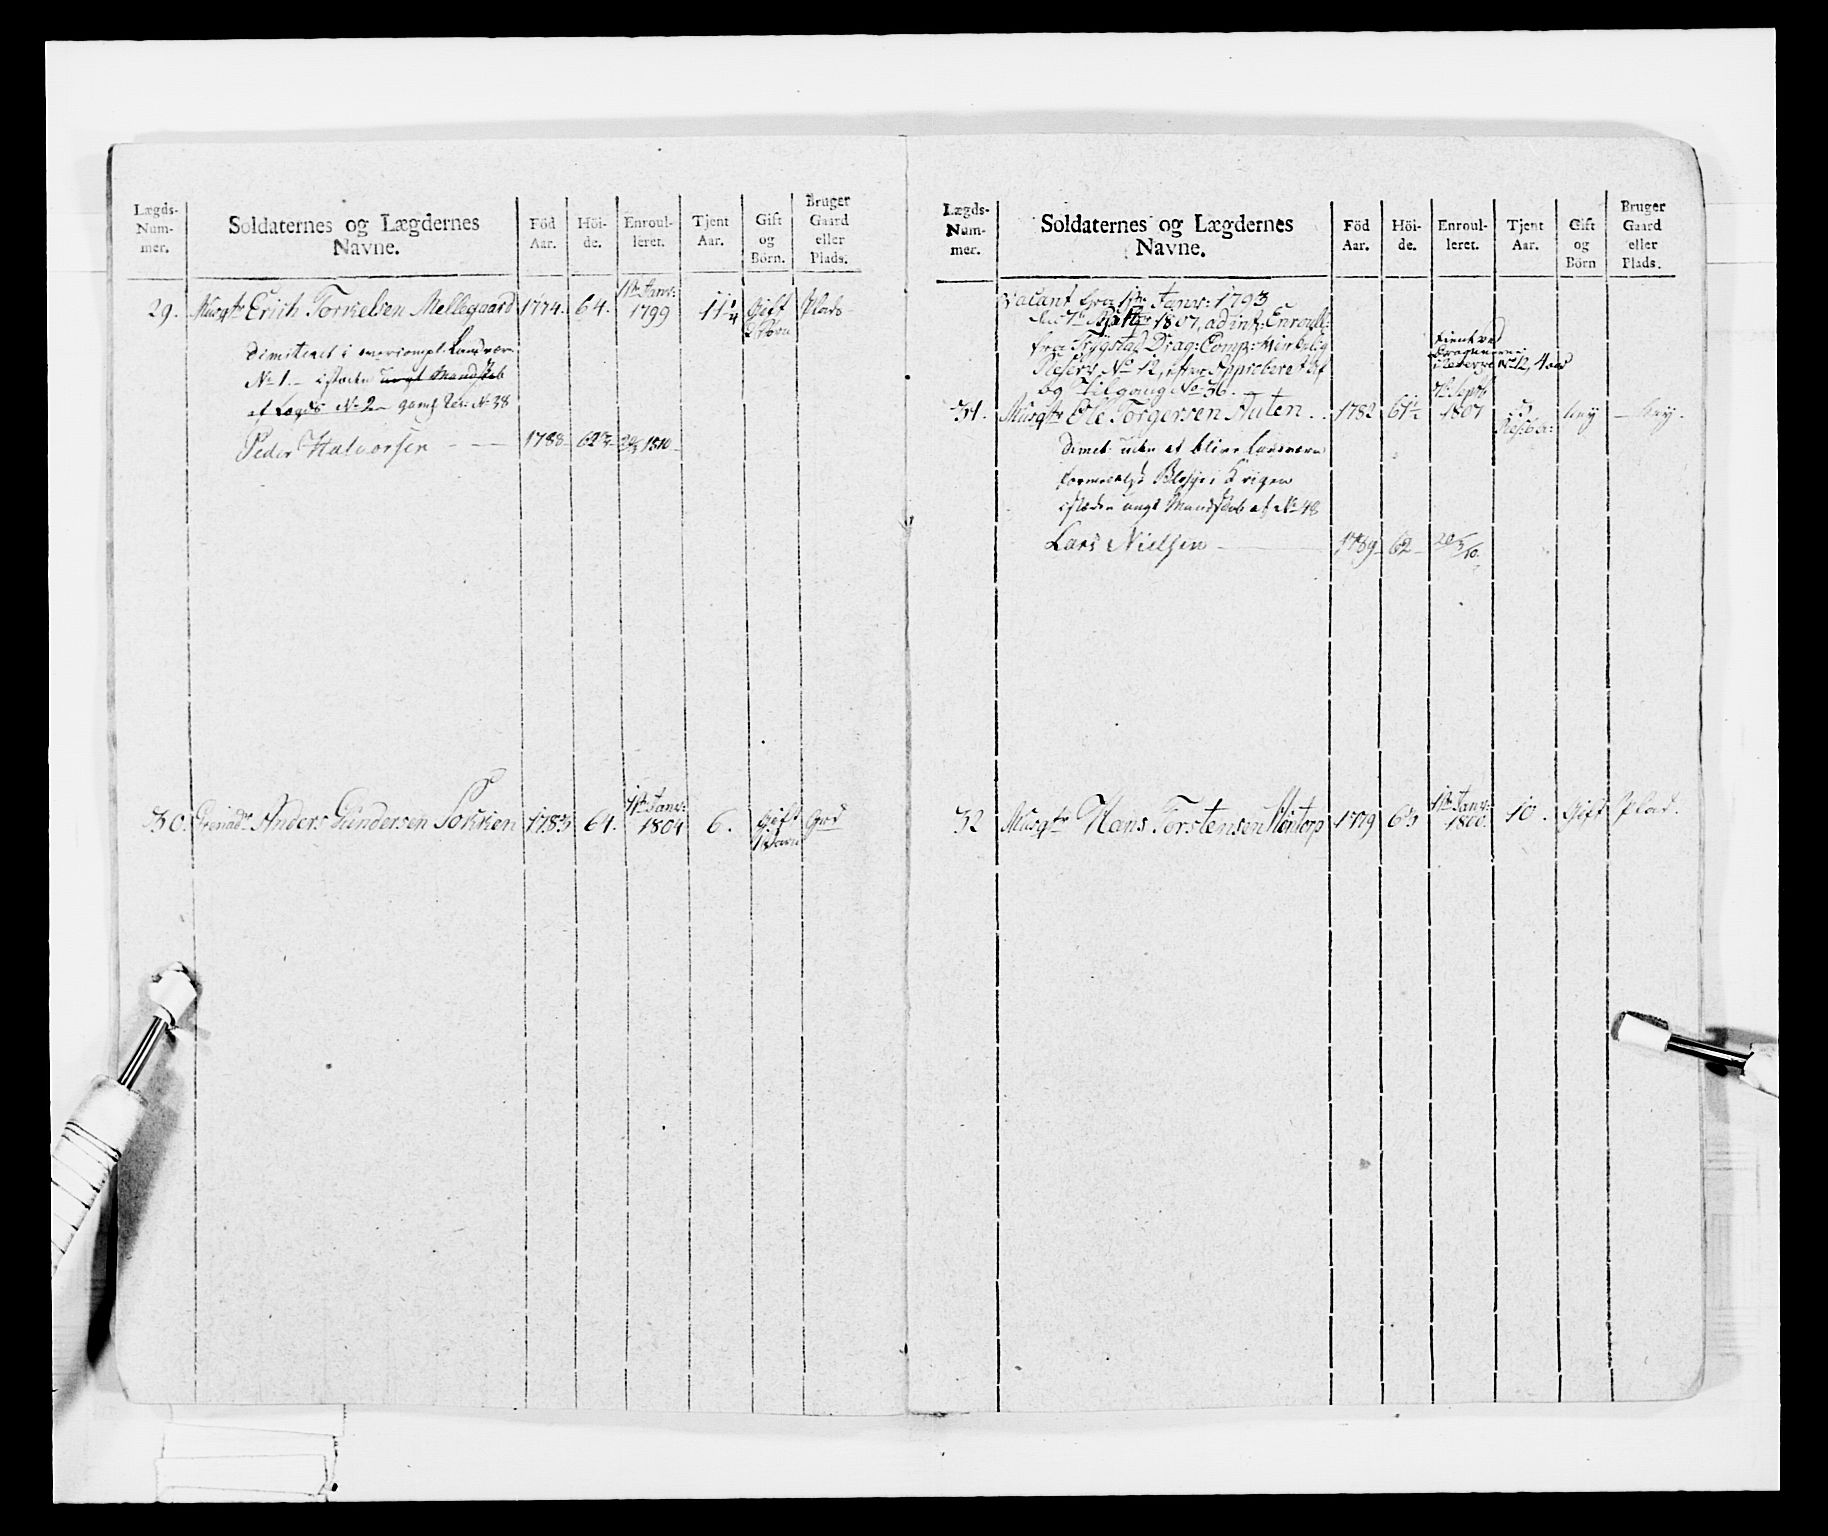 Lægds-
Num-
mer.
Soldaternes og Lægdernes
Navne.
Föd
Aar.
Höi-
de.
Enroul-
leret.
Tjent
Aar.
Gift
og
Börn.
Bruger
Gaard
eller
Plads.
29. Musqtr Erich Torkelsen Mellegaard 1774. 64. 1te Janr: 1799 11 1/4 Gift 2 Börn Plads
Dimiteret i overcompl: Landvær
No 1. – istæden ungt Mandskab
af Lægds No 2
Peder Halvorsen 1788 62 1810
30. Grenadr Anders Gundersen Sokken 1783 64. 1te Janr: 1804 6. Gift 1 Barn Grd
Lægds-
Num-
mer.
Soldaternes og Lægdernes
Navne.
Föd
Aar.
Höi-
de.
Enroul-
leret.
Tjent
Aar.
Gift
og
Börn
Bruger
Gaard
eller
Plads.
Vacant fra 1te Janr: 1793
1807, ad inf: Enroull:
fra Trygstad Drag: Comp:
Reserv No 12, efter
og Tilgang No 36.
tient ved
Reserve No 12, 4 aar
31. Musqtr Ole Torgersen Auten 1782 61 1/2 7de Septb 1807 3
Dimit: uden at blive Landværn
formedelst Blesse i Krigen
istæden ungt Mandskab af No 48
Lars Nielsen 1789 62 20/3 10.
32 Musqtr Hans Torstensen Mörtorp 1779 63 1te Janr: 1800. 10. Gift Plad.